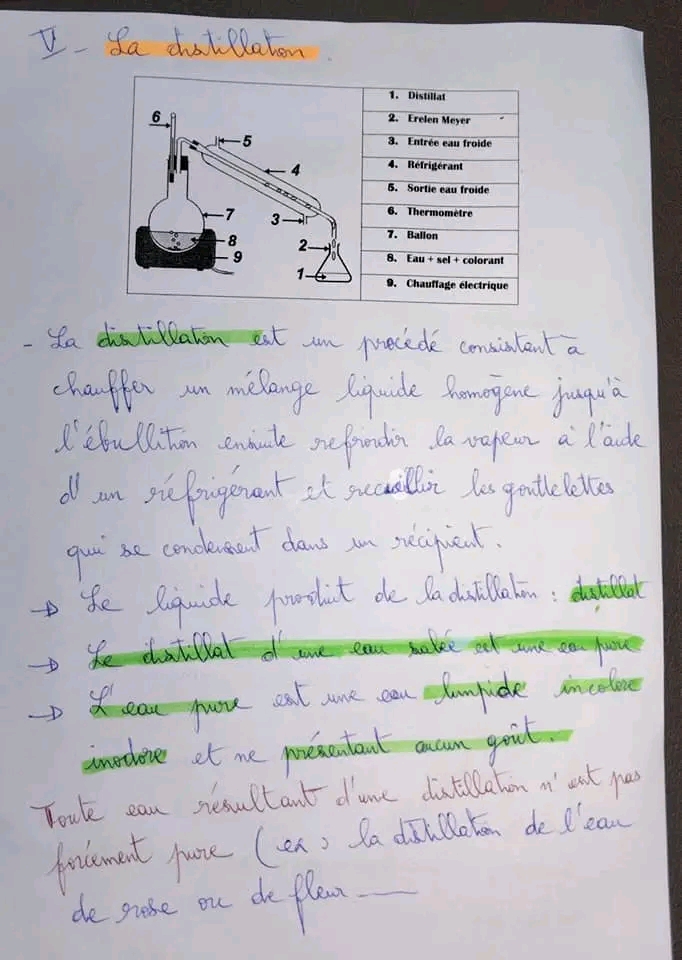 V - La distillation
1. Distillat
2. Erelen Meyer
3. Entrée eau froide
4. Réfrigérant
5. Sortie eau froide
6. Thermomètre
7. Ballon
8. Eau + sel + colorant
9. Chauffage électrique
6
5
4
3
7
8
9
2
1
- La distillation est un procédé consistant à
chauffer un mélange liquide homogène jusqu'à
l'ébullition ensuite refroidir la vapeur à l'aide
d'un réfrigérant et recueillir les gouttelettes
qui se condensent dans un récipient.
→ Le liquide produit de la distillation : distillat
→ Le distillat d'une eau salée est une eau pure
→ L'eau pure est une eau limpide incolore
inodore et ne présentant aucun goût.
Toute eau résultant d'une distillation n'est pas
forcément pure (ex : la distillation de l'eau
de rose ou de fleur